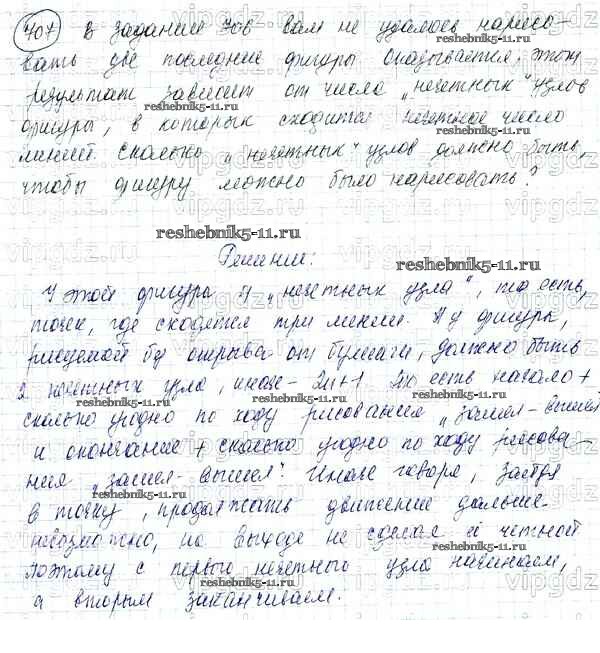 407 В задании 406 вам не удалось нарисо-
вать две последние фигуры. Оказывается, этот
результат зависит от числа „нечетных" узлов
фигуры, в которых сходится нечетное число
линий. Сколько „нечетных" узлов должно быть,
чтобы фигуру можно было нарисовать?
reshebnik5-11.ru
Решение:
У этой фигуры 4 „нечетных узла", то есть,
точек, где сходятся три линии. А у фигуры,
рисуемой без отрыва от бумаги, должно быть
2 нечетных узла, иначе - 2n+1. То есть начало +
сколько угодно по ходу рисования „зашел-вышел"
и окончание + сколько угодно по ходу рисова-
ния „зашел-вышел". Иначе говоря, зайдя
в точку, продолжать движение дальше
невозможно, но выходе не сделав её четной
Поэтому с первого нечетного узла начинаем,
а вторым заканчиваем.